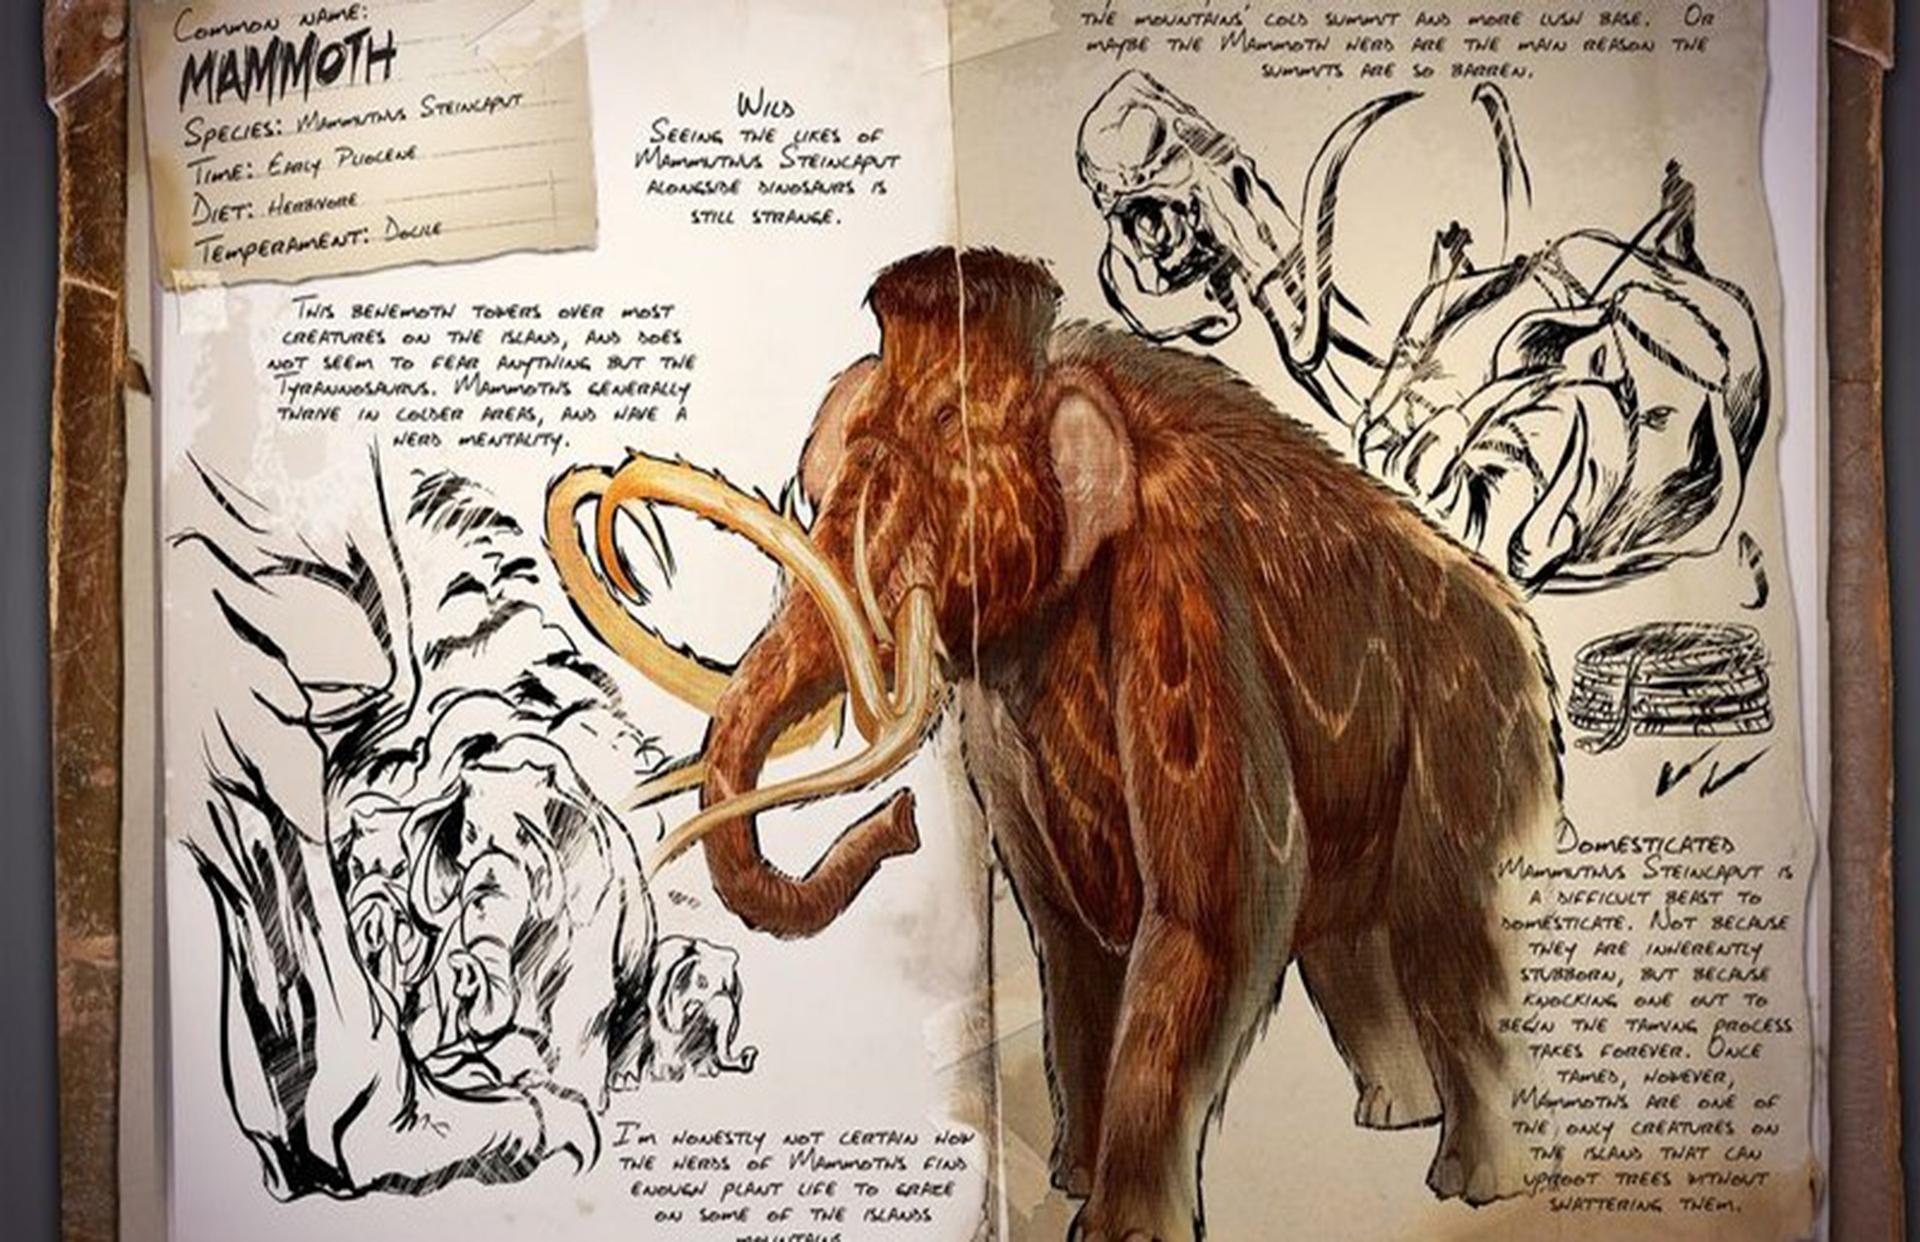 Common name:
MAMMOTH
Species: Mammuthus Steincaput
Time: Early Pliocene
Diet: Herbivore
Temperament: Docile
Wild
Seeing the likes of
Mammuthus Steincaput
alongside dinosaurs is
still strange.
This behemoth towers over most
creatures on the island, and does
not seem to fear anything but the
Tyrannosaurus. Mammoths generally
thrive in colder areas, and have a
herd mentality.
I'm honestly not certain how
the herds of Mammoths find
enough plant life to graze
on some of the islands
mountains
the mountains' cold summit and more lush base. Or
maybe the Mammoth herd are the main reason the
summits are so barren.
Domesticated
Mammuthus Steincaput is
a difficult beast to
domesticate. Not because
they are inherently
stubborn, but because
knocking one out to
begin the taming process
takes forever. Once
tamed, however,
Mammoths are one of
the only creatures on
the island that can
uproot trees without
shattering them.